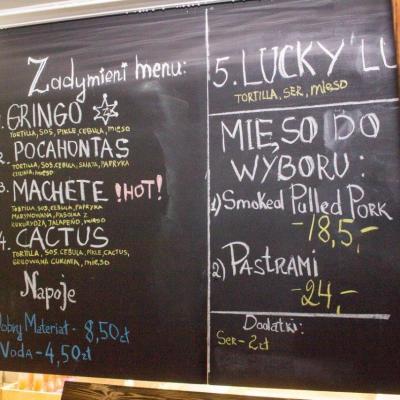 Zadymieni menu:
1. GRINGO
TORTILLA, SOS, PIKLE, CEBULA, MIĘSO
2. POCAHONTAS
TORTILLA, SOS, CEBULA, SAŁATA, PAPRYKA
MIĘSO
3. MACHETE !HOT!
TORTILLA, SOS, CEBULA, PAPRYKA
MARYNOWANA, FASOLKA Z
KUKURYDZĄ, JALAPEÑO, MIĘSO
4. CACTUS
TORTILLA, SOS, CEBULA, PIKLE, CACTUS,
GRILLOWANA CUKINIA, MIĘSO
Napoje
Dobry Materiał - 8,50zł
Woda - 4,50zł
5. LUCKY LU
TORTILLA, SER, MIĘSO
MIĘSO DO
WYBORU:
1) Smoked Pulled Pork
-18,5,-
2) PASTRAMI
-24,-
Dodatki:
SER - 2zł